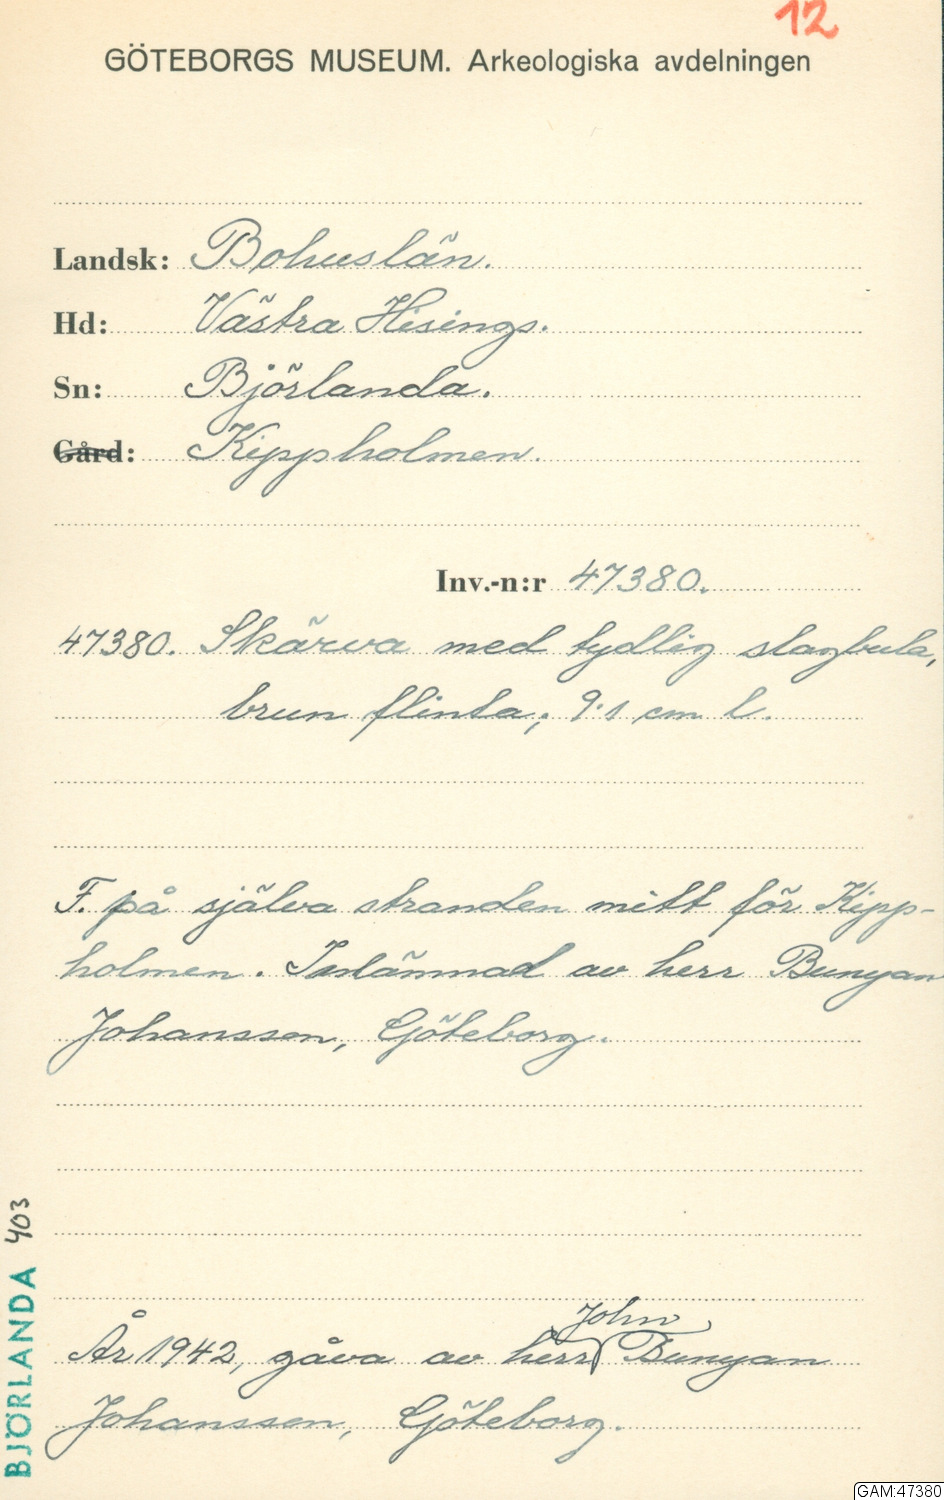 12
GÖTEBORGS MUSEUM. Arkeologiska avdelningen
Landsk: Bohuslän.
Hd: Västra Hisings.
Sn: Björlanda.
Gård: Kippholmen.
Inv.-n:r 47380.
47380. Skärva med tydlig slagbula,
brun flinta; 9.1 cm l.
F. på själva stranden mitt för Kipp-
holmen. Inlämnad av herr Bunyan
Johansson, Göteborg.
John
År 1942, gåva av herr Bunyan
Johansson, Göteborg.
BJÖRLANDA 403
GAM:47380